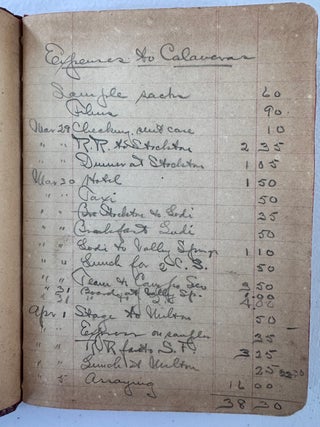 Expenses to Calaveras
Sample sacks 60
Films 90
Mar 29 Checking suit case 10
" " R.R. to Stockton 2 35
" " Dinner at Stockton 1 05
Mar 30 Hotel 1 50
" " Taxi 50
" " Stockton to Lodi 25
" " Breakfast Lodi 50
" " Lodi to Valley Springs 1 10
" " Lunch for 50
" " Team to 50
" 31 Board at Valley Sp.
" 31
Apr 1 Stage to Milton 50
" " Express on samples 25
" " R.R. to S.F. 3 25
" " Lunch at Milton 25
" 5 Assaying 16 00
38 30